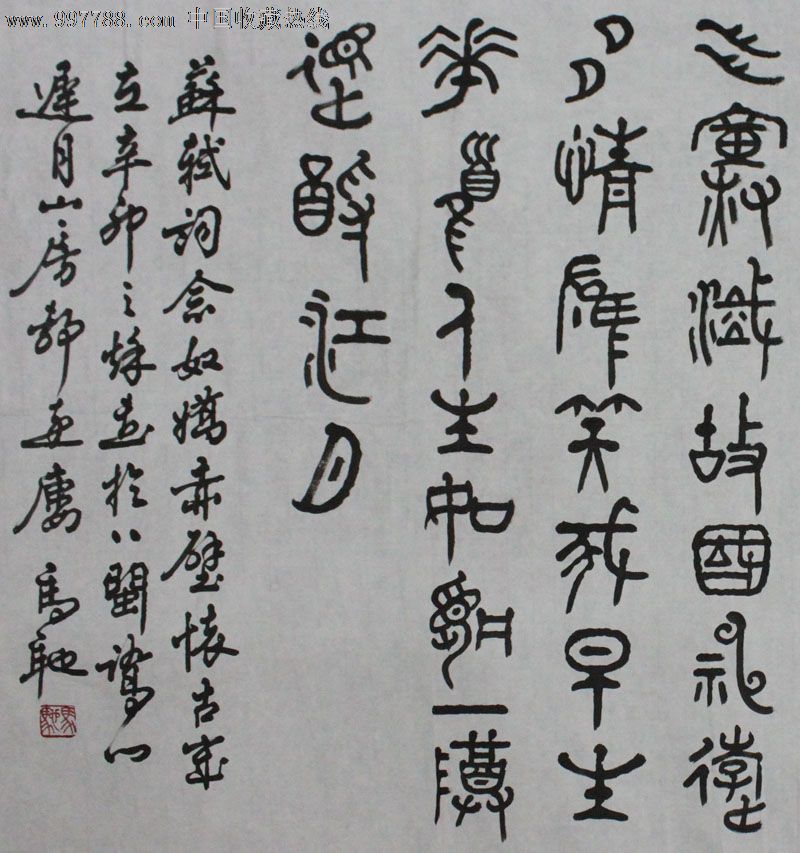 www.997788.com 中国收藏热线
滅故國神遊
多情應笑我早生
華髮人生如夢一尊
還酹江月
蘇軾詞念奴嬌赤壁懷古歲
在辛卯之秋書於八閩鷺門
遲月山房 馬馳